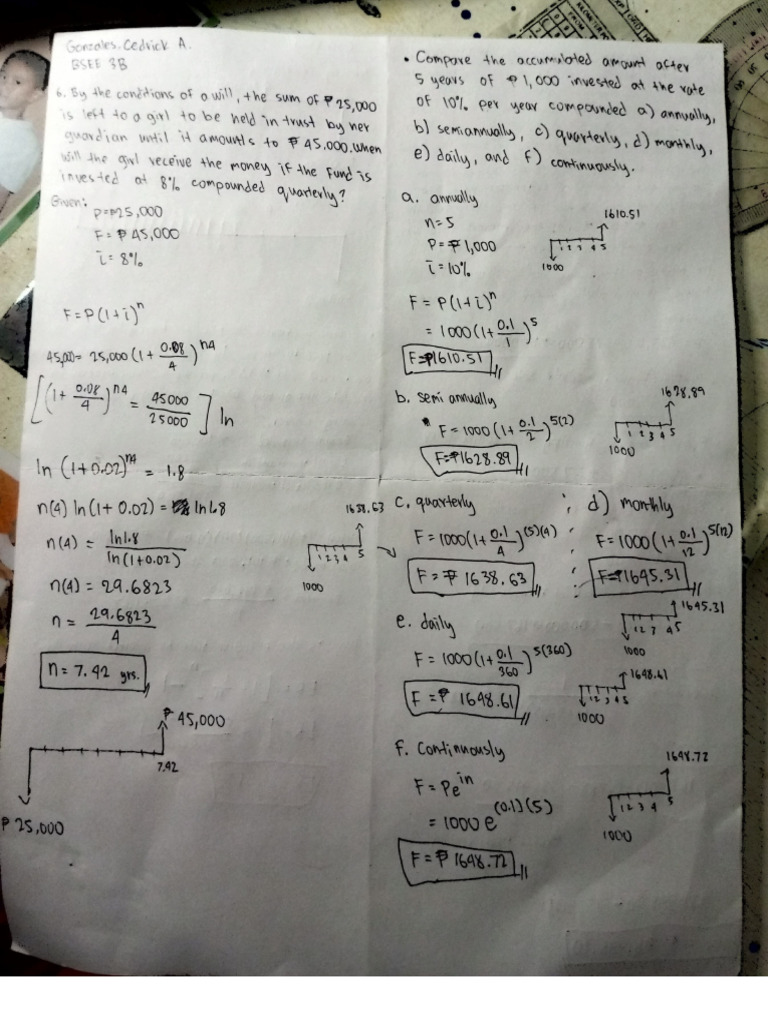 Gonzales, Cedrick A.
BSEE 3B
6. By the conditions of a will, the sum of ₱25,000
is left to a girl to be held in trust by her
guardian until it amounts to ₱45,000. When
will the girl receive the money if the fund is
invested at 8% compounded quarterly?
Given:
P=₱25,000
F=₱45,000
i=8%
F=P(1+i)^n
45,000=25,000(1+0.08/4)^n4
[(1+0.08/4)^n4=45000/25000] ln
ln(1+0.02)^n4=1.8
n(4) ln(1+0.02)=ln1.8
n(4)=ln1.8/ln(1+0.02)
n(4)=29.6823
n=29.6823/4
n=7.42 yrs.
₱45,000
7.42
₱25,000
• Compare the accumulated amount after
5 years of ₱1,000 invested at the rate
of 10% per year compounded a) annually,
b) semiannually, c) quarterly, d) monthly,
e) daily, and f) continuously.
a. annually
n=5
P=₱1,000
i=10%
1610.51
1 2 3 4 5
1000
F=P(1+i)^n
=1000(1+0.1/1)^5
F=₱1610.51
b. semi annually
F=1000(1+0.1/2)^5(2)
F=₱1628.89
1628.89
1 2 3 4 5
1000
c. quarterly
F=1000(1+0.1/4)^(5)(4)
F=₱1638.63
1638.63
1 2 3 4 5
1000
d) monthly
F=1000(1+0.1/12)^5(12)
F=₱1645.31
1645.31
1 2 3 4 5
1000
e. daily
F=1000(1+0.1/360)^5(360)
F=₱1648.61
1648.61
1 2 3 4 5
1000
f. Continuously
F=Pe^in
=1000e^(0.1)(5)
F=₱1648.72
1648.72
1 2 3 4 5
1000